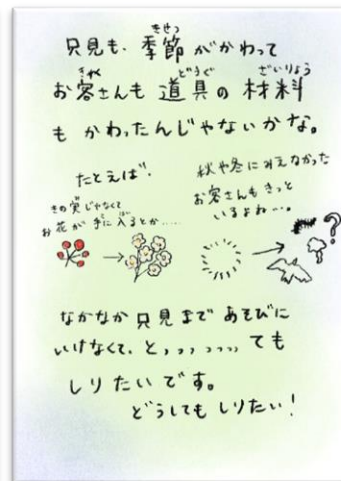 只見も、季節がかわって
お客さんも道具の材料
もかわったんじゃないかな。
たとえば、
きの実じゃなくて
お花が手に入るとか.....
秋や冬にみえなかった
お客さんもきっと
いるよね...。
?
なかなか只見まであそびに
いけなくて、とっっっっっっても
しりたいです。
どうしてもしりたい!